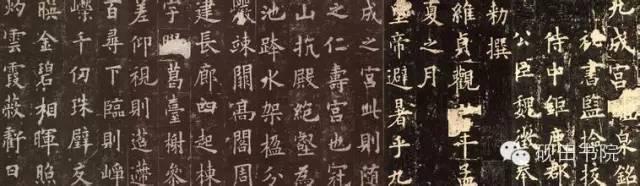 九成宮泉銘
秘書監檢校
侍中鉅鹿郡
公臣魏徵奉
勅撰
維貞觀年孟
夏之月
皇帝避暑乎九
成之宮此則隨
之仁壽宮也冠
山抗殿絕壑為
池跨水架楹分
巖竦闕高閣周
建長廊四起棟
宇葛臺榭參
差仰視則迢遰
百尋下臨則崢
嶸千仞珠璧交
暎金碧相暉照
灼雲霞蔽虧日
砚田书院